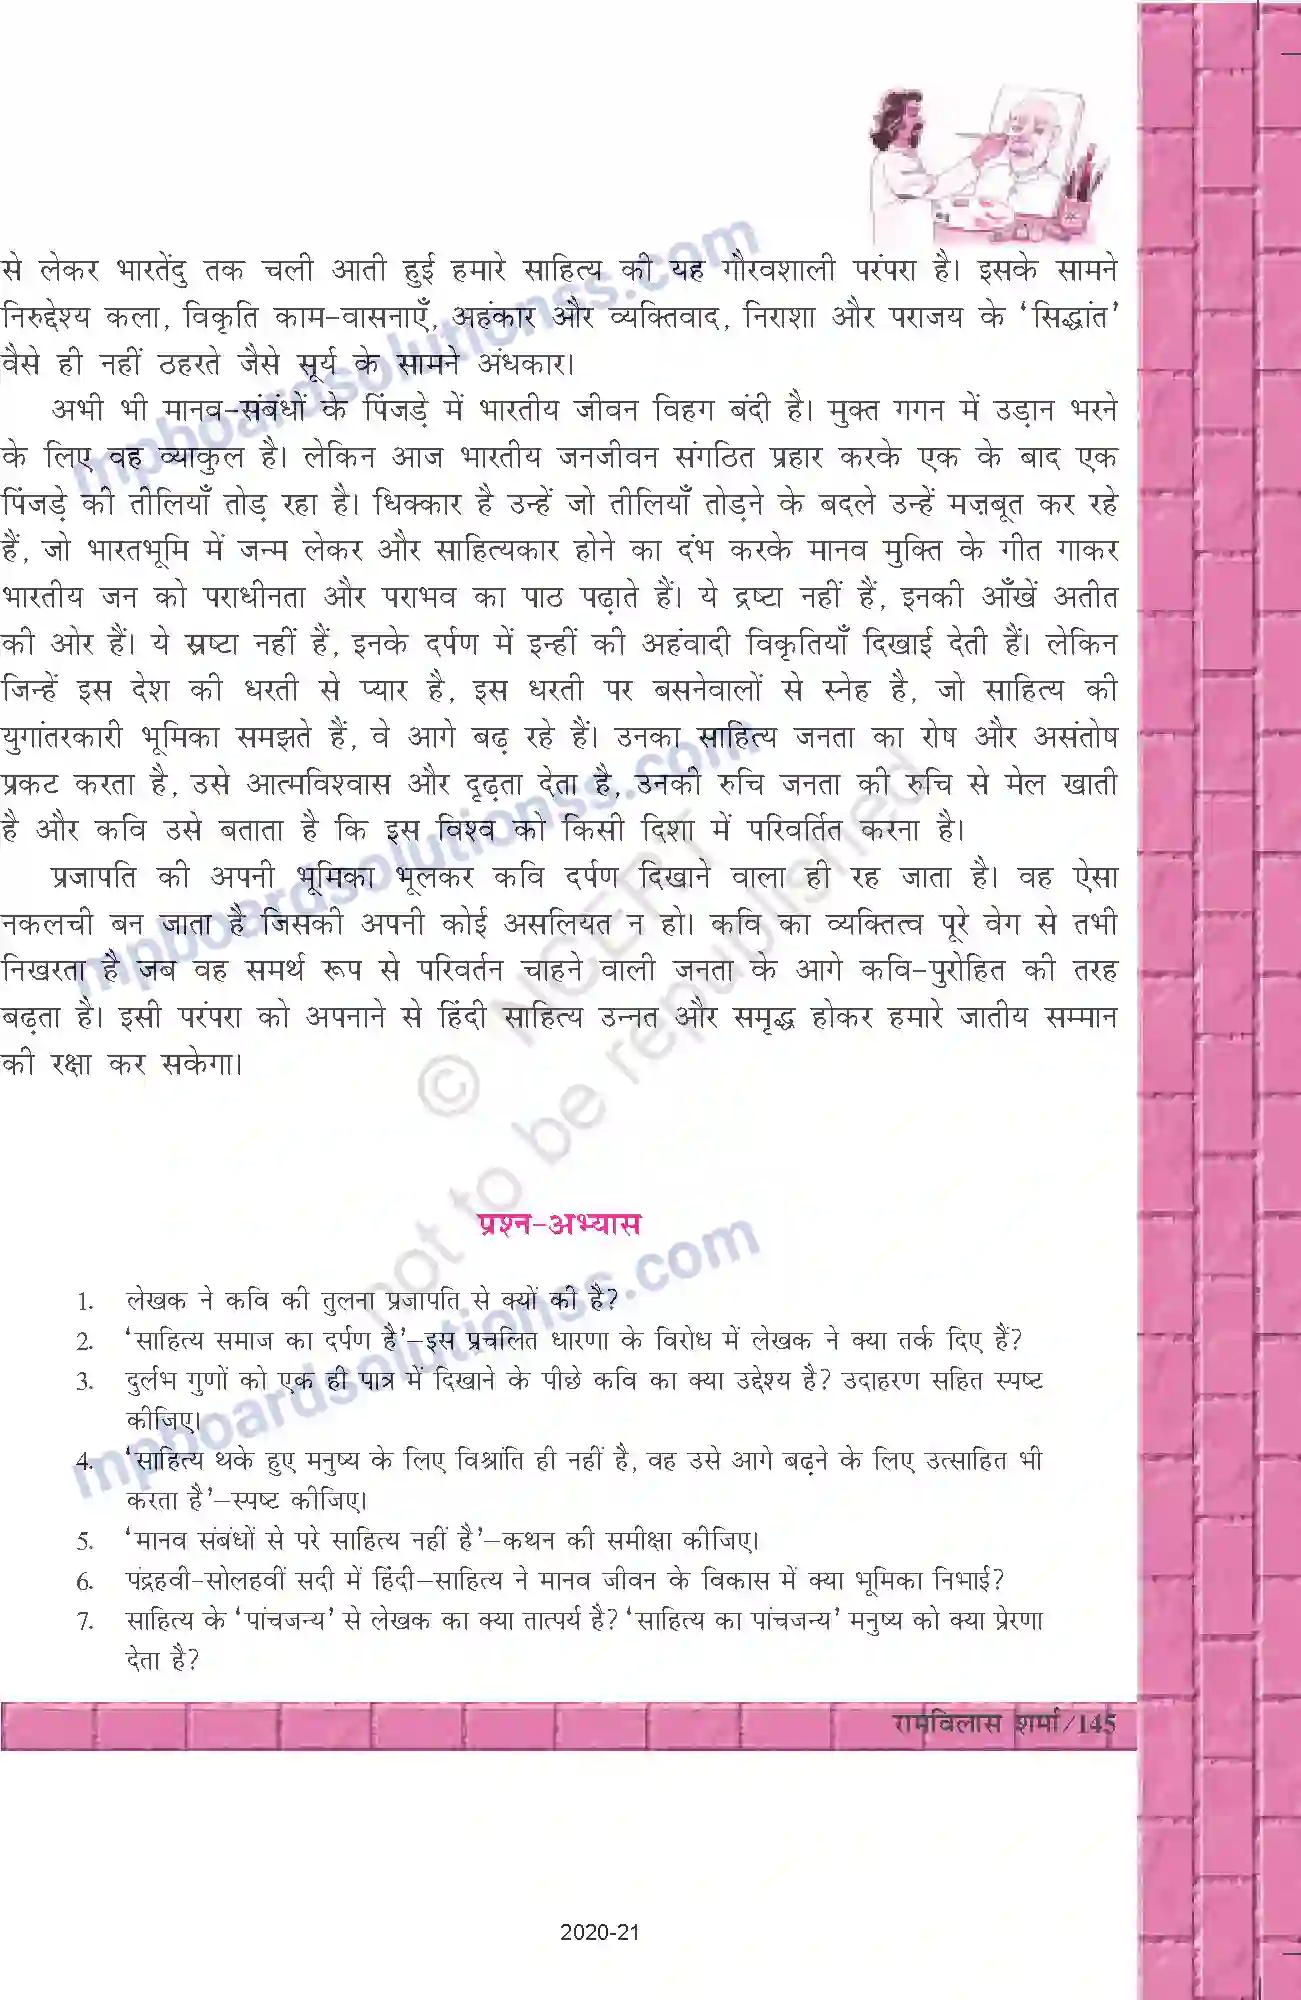 से लेकर भारतेंदु तक चली आती हुई हमारे साहित्य की यह गौरवशाली परंपरा है। इसके सामने
निरुद्देश्य कला, विकृति काम-वासनाएँ, अहंकार और व्यक्तिवाद, निराशा और पराजय के 'सिद्धांत'
वैसे ही नहीं ठहरते जैसे सूर्य के सामने अंधकार।
अभी भी मानव-संबंधों के पिंजड़े में भारतीय जीवन विहग बंदी है। मुक्त गगन में उड़ान भरने
के लिए वह व्याकुल है। लेकिन आज भारतीय जनजीवन संगठित प्रहार करके एक के बाद एक
पिंजड़े की तीलियाँ तोड़ रहा है। धिक्कार है उन्हें जो तीलियाँ तोड़ने के बदले उन्हें मज़बूत कर रहे
हैं, जो भारतभूमि में जन्म लेकर और साहित्यकार होने का दंभ करके मानव मुक्ति के गीत गाकर
भारतीय जन को पराधीनता और पराभव का पाठ पढ़ाते हैं। ये द्रष्टा नहीं हैं, इनकी आँखें अतीत
की ओर हैं। ये स्रष्टा नहीं हैं, इनके दर्पण में इन्हीं की अहंवादी विकृतियाँ दिखाई देती हैं। लेकिन
जिन्हें इस देश की धरती से प्यार है, इस धरती पर बसनेवालों से स्नेह है, जो साहित्य की
युगांतरकारी भूमिका समझते हैं, वे आगे बढ़ रहे हैं। उनका साहित्य जनता का रोष और असंतोष
प्रकट करता है, उसे आत्मविश्वास और दृढ़ता देता है, उनकी रुचि जनता की रुचि से मेल खाती
है और कवि उसे बताता है कि इस विश्व को किसी दिशा में परिवर्तित करना है।
प्रजापति की अपनी भूमिका भूलकर कवि दर्पण दिखाने वाला ही रह जाता है। वह ऐसा
नकलची बन जाता है जिसकी अपनी कोई असलियत न हो। कवि का व्यक्तित्व पूरे वेग से तभी
निखरता है जब वह समर्थ रूप से परिवर्तन चाहने वाली जनता के आगे कवि-पुरोहित की तरह
बढ़ता है। इसी परंपरा को अपनाने से हिंदी साहित्य उन्नत और समृद्ध होकर हमारे जातीय सम्मान
की रक्षा कर सकेगा।
प्रश्न-अभ्यास
1. लेखक ने कवि की तुलना प्रजापति से क्यों की है?
2. 'साहित्य समाज का दर्पण है'-इस प्रचलित धारणा के विरोध में लेखक ने क्या तर्क दिए हैं?
3. दुर्लभ गुणों को एक ही पात्र में दिखाने के पीछे कवि का क्या उद्देश्य है? उदाहरण सहित स्पष्ट
कीजिए।
4. 'साहित्य थके हुए मनुष्य के लिए विश्रांति ही नहीं है, वह उसे आगे बढ़ने के लिए उत्साहित भी
करता है'-स्पष्ट कीजिए।
5. 'मानव संबंधों से परे साहित्य नहीं है'-कथन की समीक्षा कीजिए।
6. पंद्रहवी-सोलहवीं सदी में हिंदी-साहित्य ने मानव जीवन के विकास में क्या भूमिका निभाई?
7. साहित्य के 'पांचजन्य' से लेखक का क्या तात्पर्य है? 'साहित्य का पांचजन्य' मनुष्य को क्या प्रेरणा
देता है?
रामविलास शर्मा/145
2020-21
mpboardsolutionss.com
mpboardsolutionss.com
mpboardsolutionss.com
© NCERT
not to be republished